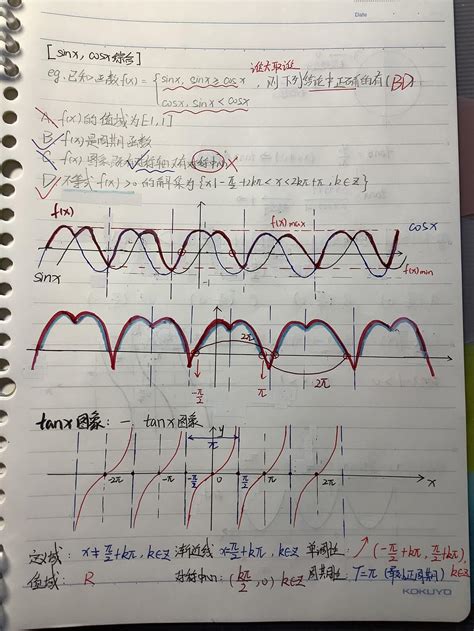 Date
[sinx, cosx综合]
谁大取谁
eg.已知函数f(x)={ sinx, sinx≥cosx , 则下列结论中正确的有(BD)
cosx, sinx<cosx
A. f(x)的值域为[-1,1]
B. f(x)是周期函数
C. f(x)图象 对称轴 对称中心
D. 不等式f(x)>0的解集为{x|-π/2+2kπ<x<2kπ+π,k∈Z}
f(x) f(x)max cosx
sinx -1 f(x)min
2π
-π/2 π 2π
tanx图象: 一. tanx图象
y
π
-2π -π -π/2 0 π/2 π 2π x
定义域: x≠π/2+kπ,k∈Z 渐近线 x=π/2+kπ,k∈Z 单调性: ↗(-π/2+kπ,π/2+kπ)
值域: R 对称中心: (kπ/2,0) k∈Z 周期性: T=π (最小正周期)
KOKUYO